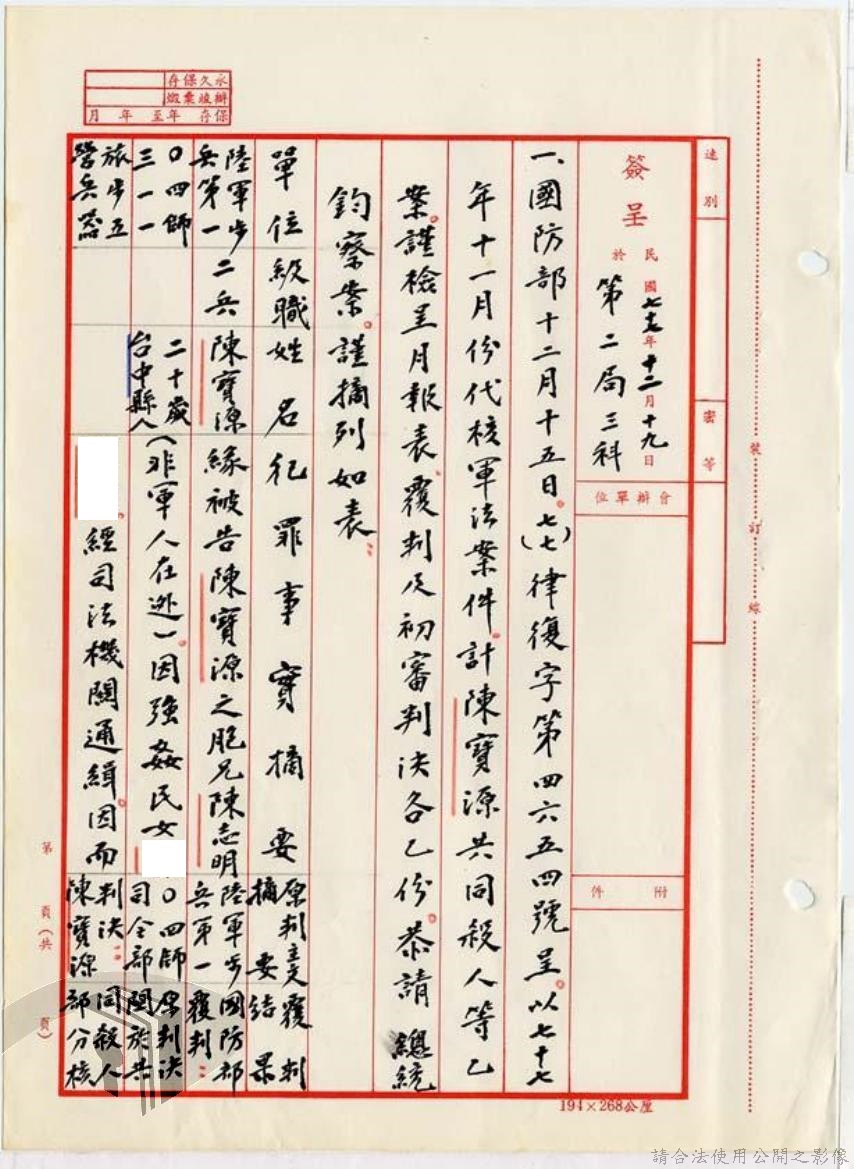 永久保存
辦竣彙燬
保存 年至 年 月
速別
密等
簽呈
民國七七年十二月十九日
於 第二局三科
會辦單位
附件
裝訂線
一、國防部十二月十五日。(七七)律復字第四六五四號呈。以七十七
年十一月份代核軍法案件。計陳寶源共同殺人等乙
案。謹檢呈月報表。覆判及初審判決各乙份。恭請 總統
鈞察案。謹摘列如表：
單位級職姓名犯罪事實摘要
原判主文
摘要
覆判
結果
陸軍步
兵第一
〇四師
三一一
旅步五
營兵器
二兵
陳寶源
二十歲
台中縣人
緣被告陳寶源之胞兄陳志明
(非軍人在逃)。因強姦民女
。經司法機關通緝。因而
陸軍步
兵第一
〇四師
司令部
判決：
陳寶源
國防部
覆判：
原判決
關於共
同殺人
部分核
第 頁(共 頁)
194×268公厘
請合法使用公開之影像